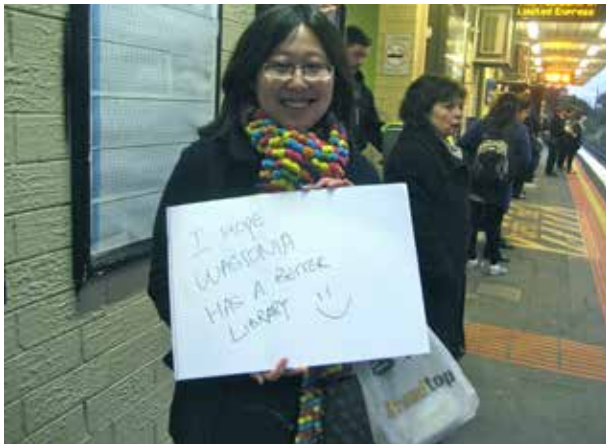 Limited Express
I HOPE
WATSONIA
HAS A BETTER
LIBRARY